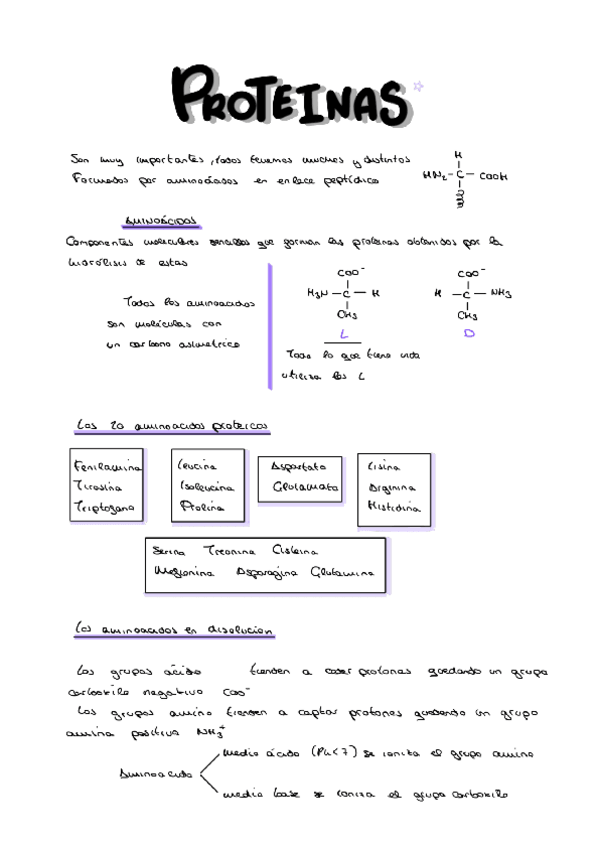 PROTEINAS
Son muy importantes, todos tenemos muchas y distintos
Formados por aminoácidos en enlace peptídico
H
HN2 - C - COOH
AMINOÁCIDOS
Componentes moleculares sencillos que forman las proteinas obtenidos por la
hidrólisis de estas
Todos los aminoacidos
son moléculas con
un carbono asimetrico
COO-
H3N - C - H
CH3
L
COO-
H - C - NH3
CH3
D
Todo lo que tiene vida
utiliza los L
Los 20 aminoacidos proteicos
Fenilamina
Tirosina
Triptofano
Leucina
Isoleucina
Prolina
Aspartato
Glutamato
Lisina
Arginina
Histidina
Serina Treonina Cisteina
Metionina Asparagina Glutamina
Los aminoacidos en disolucion
Los grupos ácido tienden a ceder protones quedando un grupo
carboxilo negativo COO-
Los grupos amino tienden a captar protones quedando un grupo
amina positiva NH3+
Aminoacido
medio ácido (PH<7) se ioniza el grupo amino
medio base se ioniza el grupo carboxilo